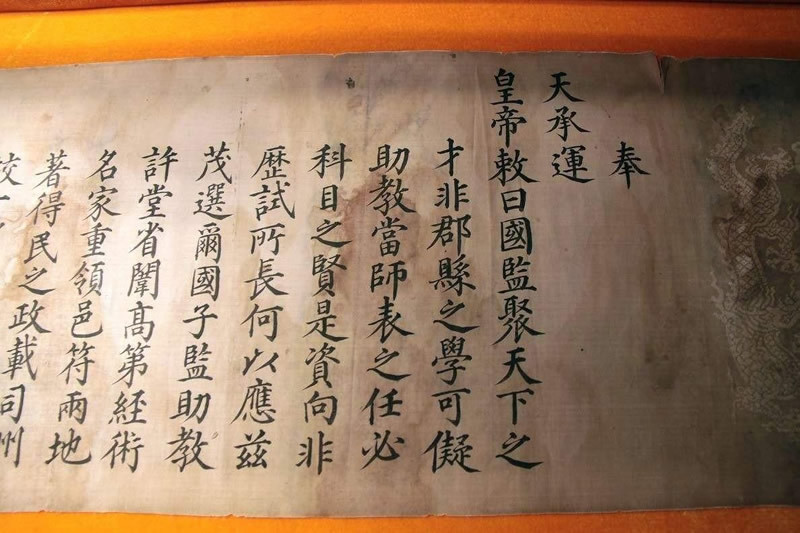 奉
天承運
皇帝敕曰國監聚天下之
才非郡縣之學可儗
助教當師表之任必
科目之賢是資向非
歷試所長何以應茲
茂選爾國子監助教
許堂省闈高第經術
名家重領邑符兩地
著得民之政載司